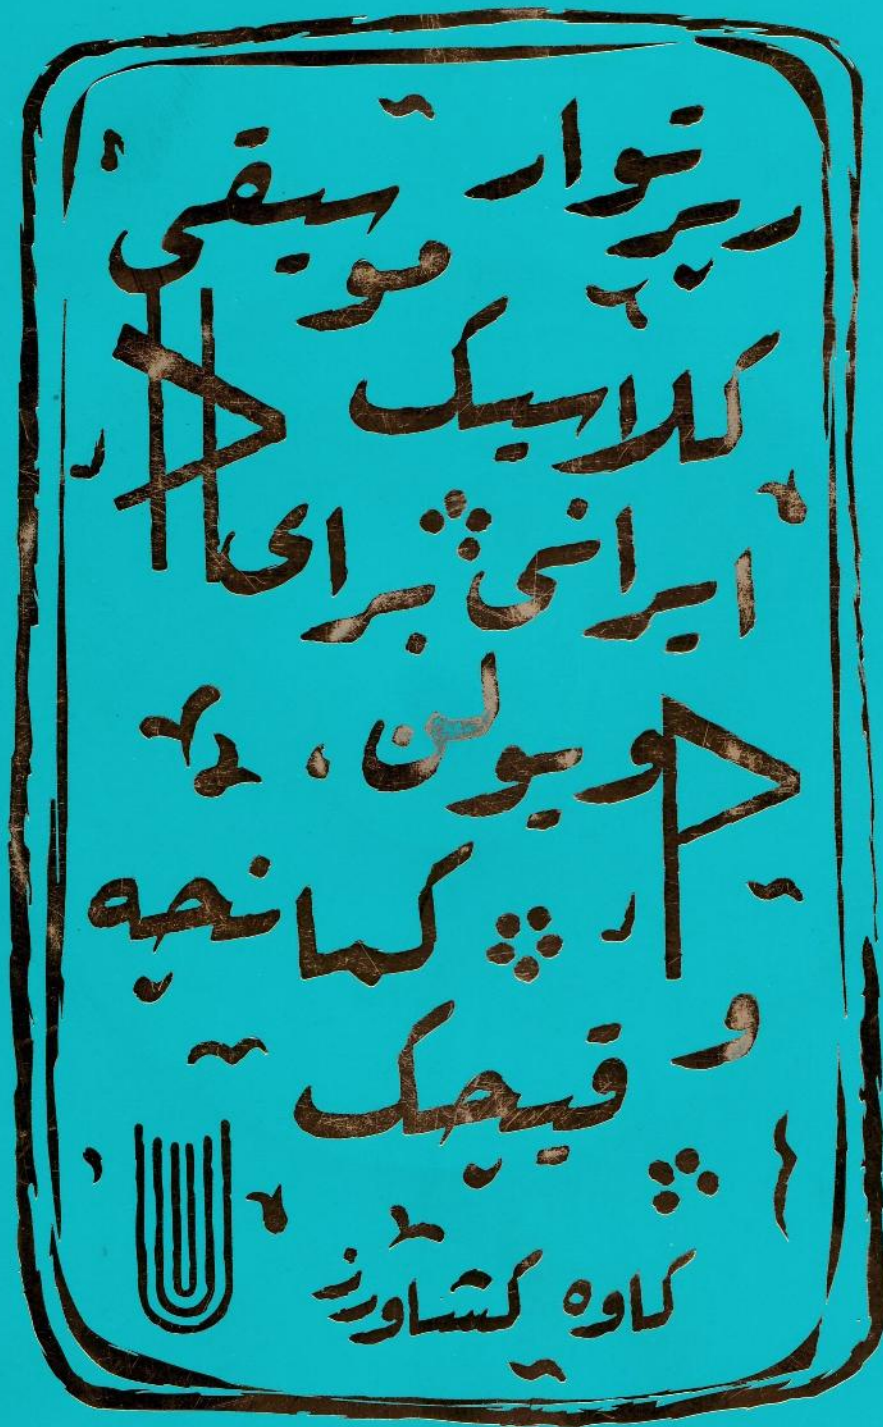 رپرتوار موسیقی
کلاسیک
ایرانی برای
ویولن،
کمانچه
و قیچک
کاوه کشاورز